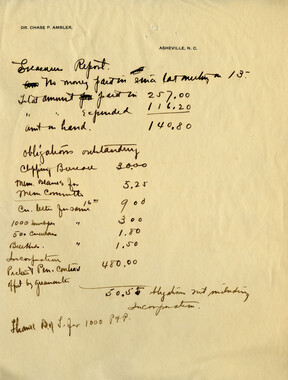 DR. CHASE P. AMBLER,
ASHEVILLE, N. C.
Treasurers Report.
No money paid in since last meeting on 13-
Total amount paid in 257.00
" " Expended 116.20
amt on hand. 140.80
Obligations outstanding
Clipping Bureau 30.00
Mem. Blanks for
Mem. Committee 5.25
Cir. letter Jan 16th 9 00
1000 envelopes " 3 00
500 Circulars " 1.80
" 1.50
Incorporation
480.00
by Guarantee
50.55 obligations not including
Incorporation.
for 1000